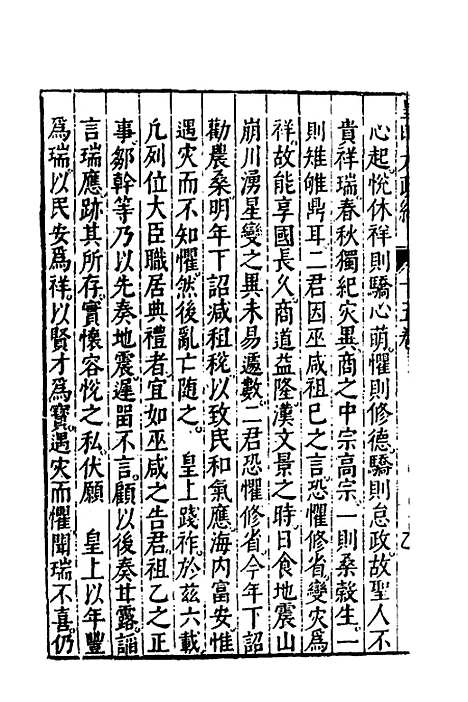 心起悅休祥則驕心萌懼則修德驕則怠政故聖人不
貴祥瑞春秋獨紀灾異商之中宗高宗一則桑穀生一
則雉雊鼎耳二君因巫咸祖已之言恐懼修省變灾爲
祥故能享國長久商道益隆漢文景之時日食地震山
崩川湧星變之異未易遽數二君恐懼修省今年下詔
勸農桑明年下詔減租稅以致民和氣應海内富安惟
遇灾而不知懼然後亂亡随之　皇上踐祚於茲六載
凢列位大臣職居典禮者宜如巫咸之告君祖乙之正
事鄒幹等乃以先奏地震遲畱不言顧以後奏甘露謟
言瑞應跡其所存實懷容悅之私伏願　皇上以年豐
爲瑞以民安爲祥以賢才爲寶遇灾而懼聞瑞不喜仍